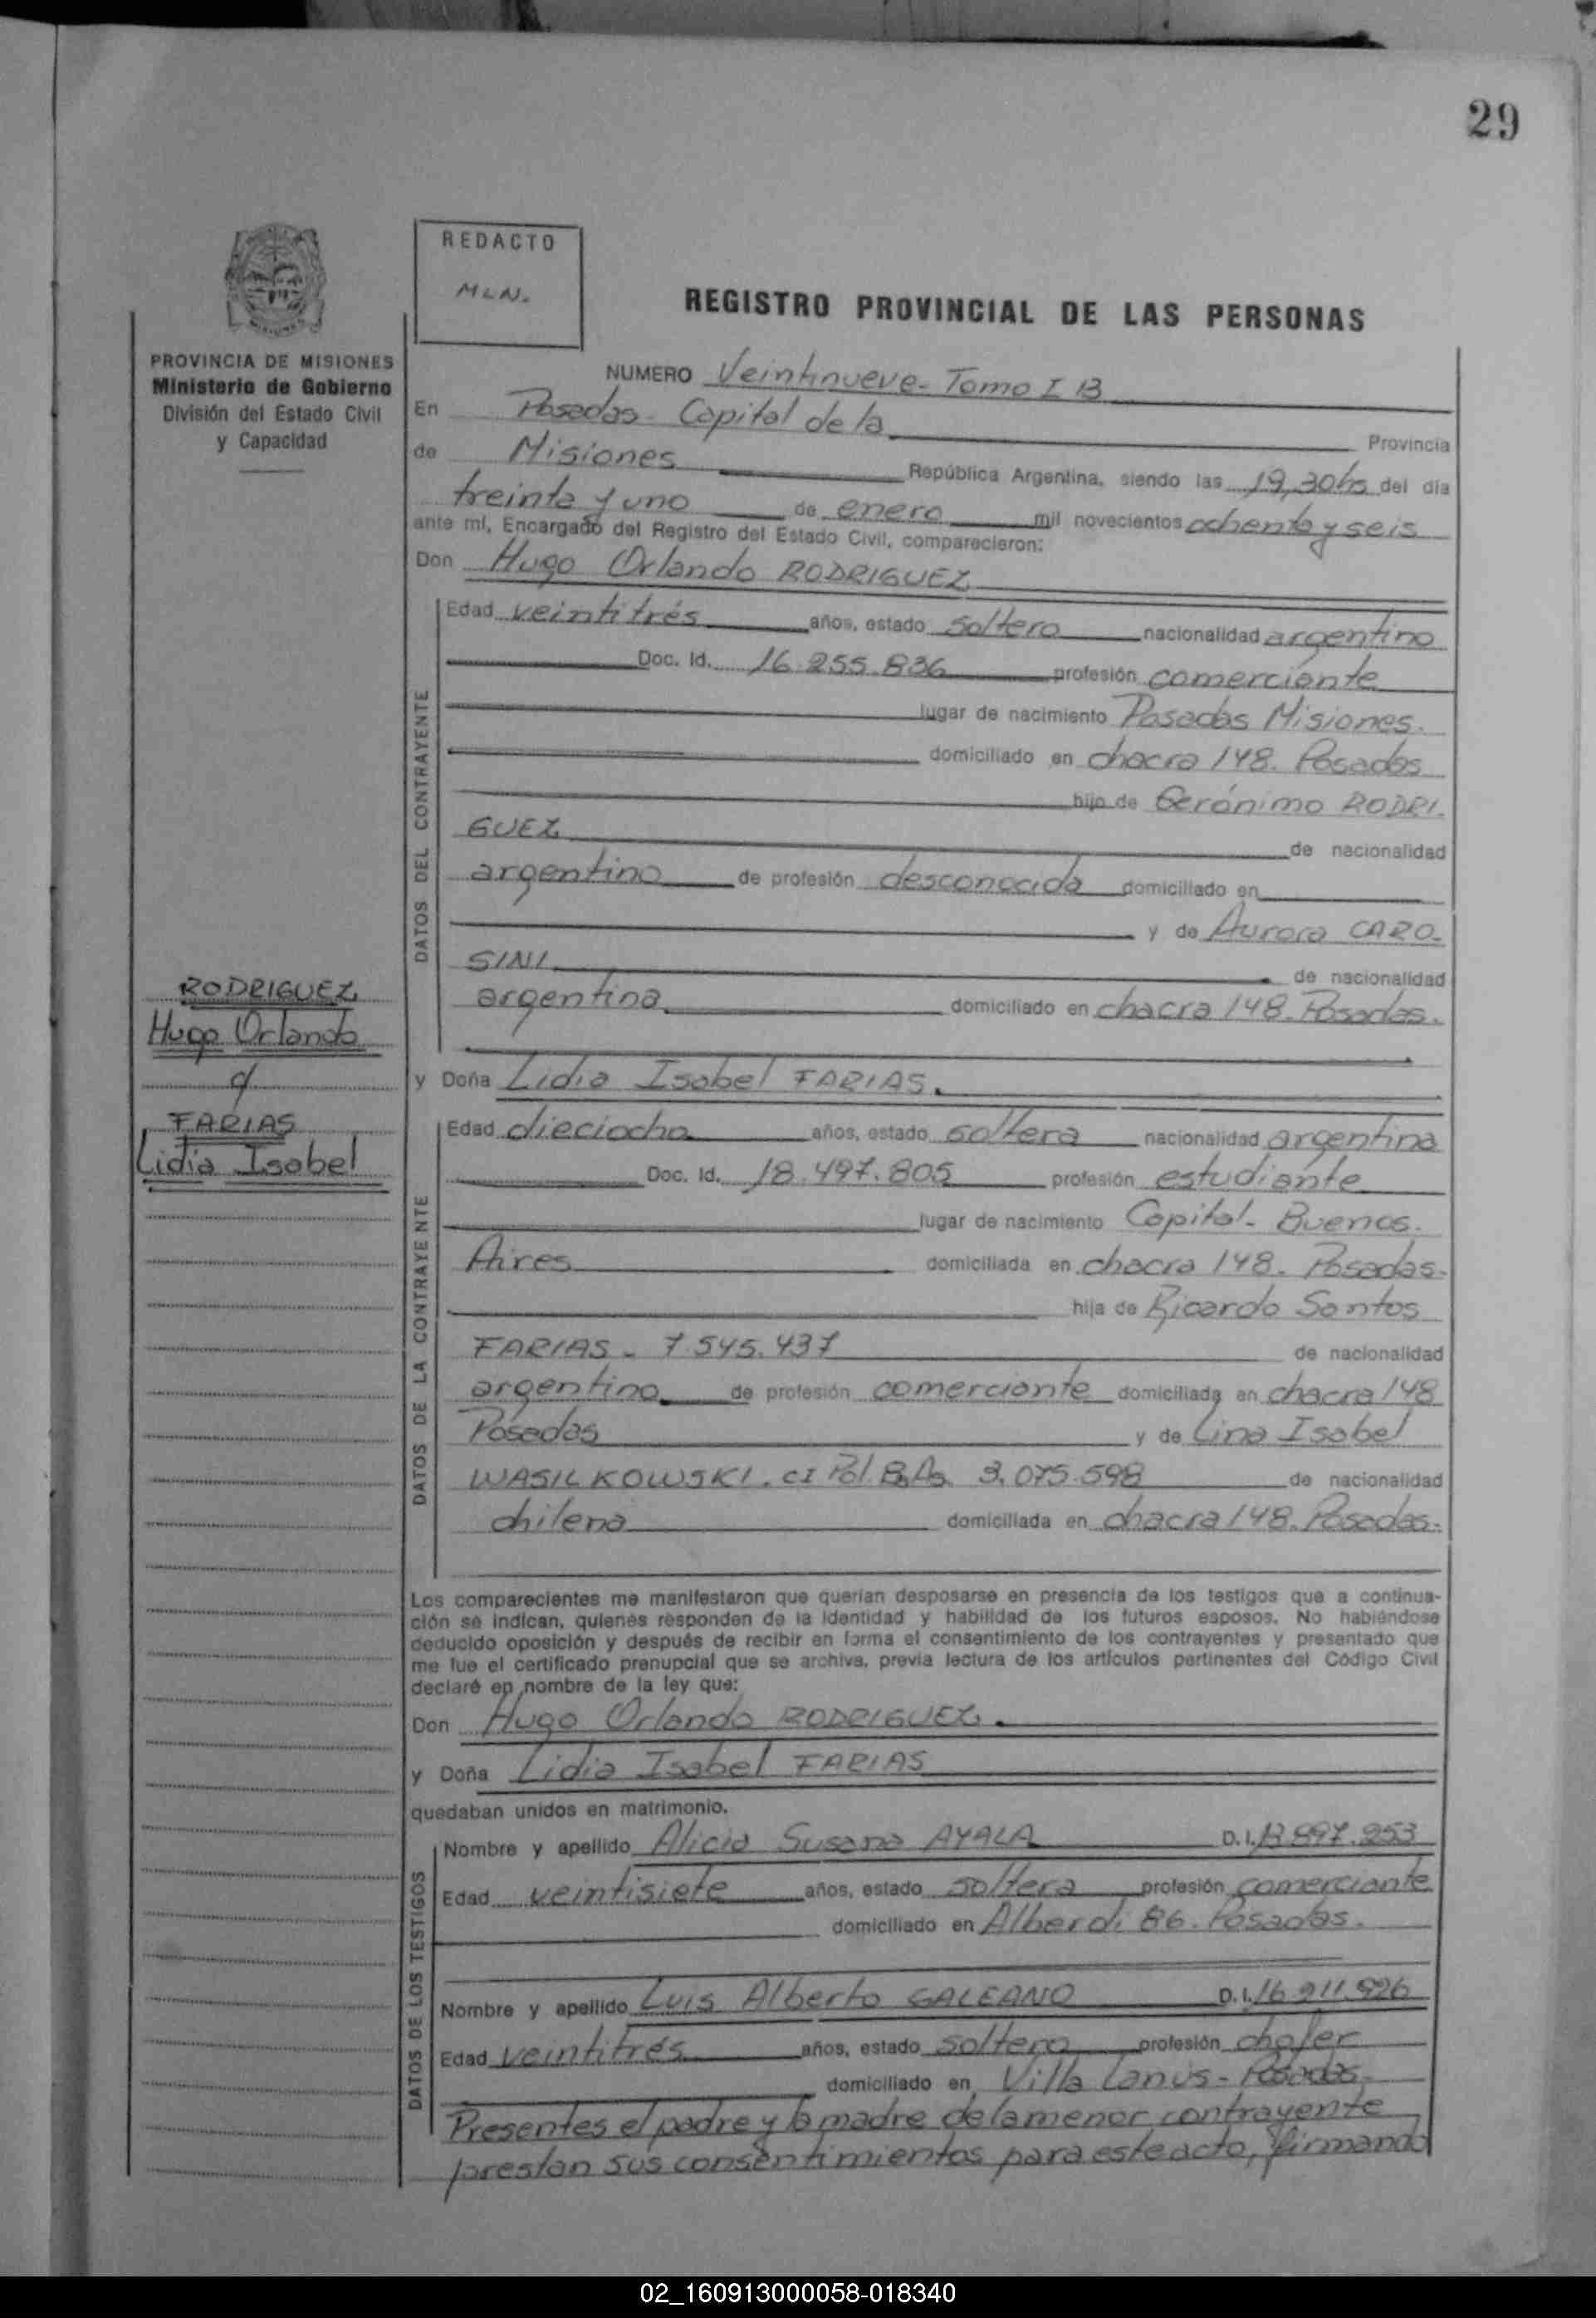 29
REDACTO
MLN.
REGISTRO PROVINCIAL DE LAS PERSONAS
PROVINCIA DE MISIONES
Ministerio de Gobierno
División del Estado Civil
y Capacidad
NUMERO Veintinueve- Tomo I B
En Posadas- Capital de la Provincia
de Misiones República Argentina, siendo las 19,30hs del día
treinta y uno de enero mil novecientos ochenta y seis
ante mí, Encargado del Registro del Estado Civil, comparecieron:
Don Hugo Orlando RODRIGUEZ
DATOS DEL CONTRAYENTE
Edad veintitrés años, estado soltero nacionalidad argentino
Doc. Id. 16.255.836 profesión comerciante
lugar de nacimiento Posadas Misiones.
domiciliado en chacra 148. Posadas
hijo de Gerónimo RODRI-
GUEZ de nacionalidad
argentino de profesión desconocida domiciliado en
y de Aurora CARO-
SINI de nacionalidad
argentina domiciliado en chacra 148. Posadas.
RODRIGUEZ
Hugo Orlando
c/
FARIAS
Lidia Isabel
y Doña Lidia Isabel FARIAS.
DATOS DE LA CONTRAYENTE
Edad dieciocho años, estado soltera nacionalidad argentina
Doc. Id. 18.497.805 profesión estudiante
lugar de nacimiento Capital- Buenos
Aires domiciliada en chacra 148. Posadas-
hija de Ricardo Santos
FARIAS - 7.545.437 de nacionalidad
argentino de profesión comerciante domiciliada en chacra 148
Posadas y de Lina Isabel
WASILKOWSKI. CI Pol. Bs As. 3.075.598 de nacionalidad
chilena domiciliada en chacra 148. Posadas-
Los comparecientes me manifestaron que querían desposarse en presencia de los testigos que a continua-
ción se indican, quienes responden de la identidad y habilidad de los futuros esposos. No habiéndose
deducido oposición y después de recibir en forma el consentimiento de los contrayentes y presentado que
me fue el certificado prenupcial que se archiva, previa lectura de los artículos pertinentes del Código Civil
declaré en nombre de la ley que:
Don Hugo Orlando RODRIGUEZ.
y Doña Lidia Isabel FARIAS
quedaban unidos en matrimonio.
DATOS DE LOS TESTIGOS
Nombre y apellido Alicia Susana AYALA D.I. 13.897.253
Edad veintisiete años, estado soltera profesión comerciante
domiciliado en Alberdi 86. Posadas.
Nombre y apellido Luis Alberto GALEANO D.I. 16.211.926
Edad veintitrés años, estado soltero profesión chofer
domiciliado en Villa Lanús- Posadas,
Presentes el padre y la madre de la menor contrayente
prestan sus consentimientos para este acto, firmando
02_160913000058-018340